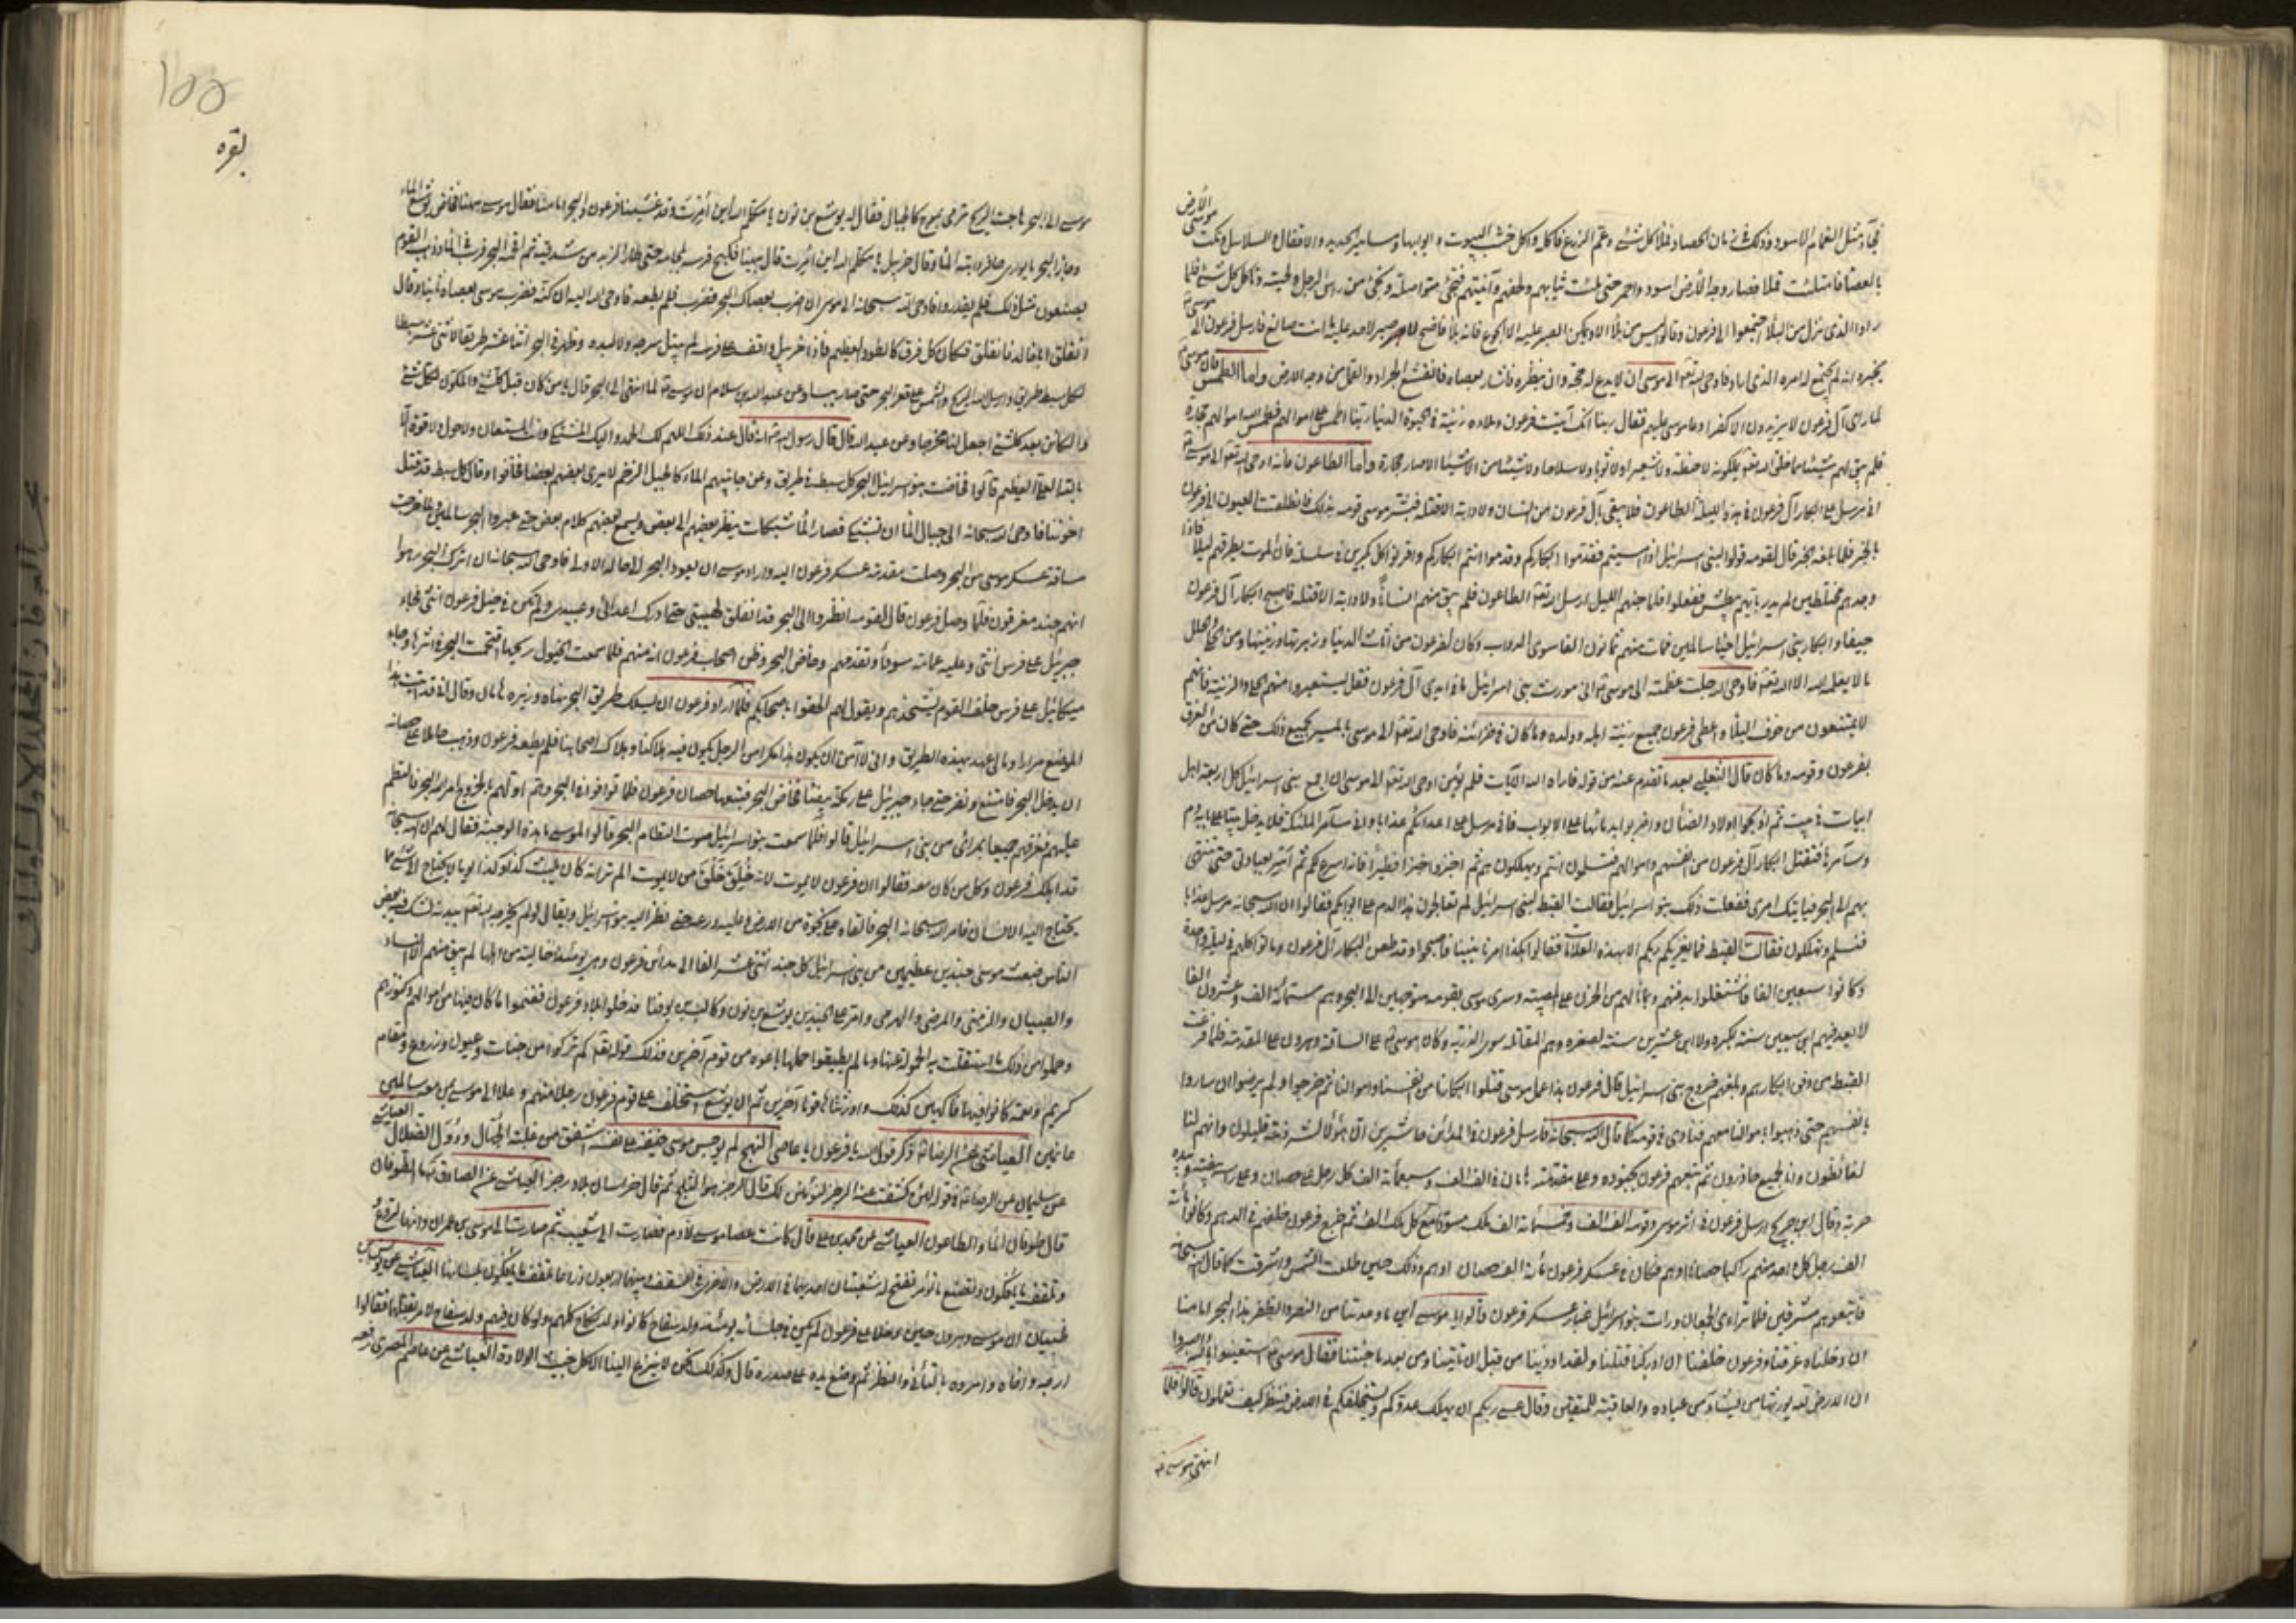 الأرض
فجاء مثل الغمامة الاسود وذلك في زمان الحصاد فلا كل شئ وعم الزرع فاكله واكل خشب البيوت وابوابها ومسامير الحديد والاقفال والسلاسل ونكت موسى
بالعصا فامتلئت قملا فصار وجه الأرض اسود واحمر حتى ملئت ثيابهم ولحفهم وآنيتهم فتجئ متواصلة وتجئ من رأس الرجل ولحيته وتأكل كل شئ فلما
راوا الذي نزل من البلاء اجتمعوا الى فرعون وقالوا ليس من بلاء الا ويمكن الصبر عليه الا الجوع فانه بلاء فاضح لا صبر لاحد عليه ما انت صانع فارسل فرعون الى موسى
يخبره انه لم يجتمع له امره الذي اراد فاوحى الله تعالى الى موسى ان لا يدع له حجة وان ينظره فاشار بعصاه فانقشع الجراد والقمل من وجه الارض واما الطمس فان موسى
لما رأى آل فرعون لا يزيدون الا كفرا دعا موسى عليهم فقال ربنا انك آتيت فرعون وملاءه زينة في الحيوة الدنيا ربنا اطمس على اموالهم فطمس الله اموالهم حجارة
فلم يبق لهم شيئا مما خلق الله تعالى يملكونه لا حنطة ولا شعيرا ولا ثوبا ولا سلاحا ولا شيئا من الاشياء الا صار حجارة واما الطاعون فانه اوحى الله تعالى الى موسى
اني مرسل على ابكار آل فرعون في هذه الليلة الطاعون فلا يبقى بآل فرعون من انسان ولا دابة الا قتله فبشر موسى قومه بذلك فانطلقت العيون الى فرعون
بالخبر فلما بلغه الخبر قال لقومه قولوا لبني اسرائيل اذا امسيتم فقدموا ابكاركم وقدموا انتم ابكاركم واقرنوا كل بكرين في سلسلة فان الموت يطرقهم ليلا فاذا
وجدهم مختلطين لم يدر بايهم يبطش ففعلوا فلما جنهم الليل ارسل الله تعالى الطاعون فلم يبق منهم انسانا ولا دابة الا قتله فاصبح ابكار آل فرعون
جيفا وابكار بني اسرائيل احياء سالمين فمات منهم ثمانون الفا سوى الدواب وكان لفرعون من اثاث الدنيا وزهرتها وزينتها ومن الحلي والحلل
ما لا يعلمه الا الله تعالى فاوحى الله جلت عظمته الى موسى اني مورث بني اسرائيل ما في ايدي آل فرعون فقل ليستعيروا منهم الحلي والزينة فانهم
لا يمتنعون من خوف البلاء واعطى فرعون جميع زينة اهله وولده وما كان في خزائنه فاوحى الله تعالى الى موسى بالمسير بجميع ذلك حتى كان من الغرق
بفرعون وقومه ما كان قال الثعلبي بعد ما تقدم عنه من قوله فاراه الله الآيات فلم يؤمن اوحى الله تعالى الى موسى ان اجمع بني اسرائيل كل اربعة اهل
ابيات في بيت ثم اذبحوا اولاد الضأن واضربوا بدمائها على الابواب فاني مرسل على اعدائكم عذابا واني سآمر الملئكة فلا يدخل بيتا على بابه دم
وسآمرها فتقتل ابكار آل فرعون من انفسهم واموالهم فتسلمون انتم ويهلكون هم ثم اخبزوا خبزا فطيرا فانه اسرع لكم ثم اسر بعبادي حتى تنتهي
بهم الى البحر فيأتيك امري ففعلت ذلك بنو اسرائيل فقالت القبط لبني اسرائيل لم تعالجون هذا الدم على ابوابكم فقالوا ان الله سبحانه مرسل عذابا
فنسلم وتهلكون فقالت القبط فما يعرفكم ربكم الا بهذه العلامات فقالوا هكذا امرنا نبينا فاصبحوا وقد طعن ابكار آل فرعون وماتوا كلهم في ليلة واحدة
وكانوا سبعين الفا فاشتغلوا بدفنهم وبما نالهم من الحزن على المصيبة وسرى موسى بقومه متوجهين الى البحر وهم ستمائة الف وعشرون الفا
لا يعد فيهم ابن سبعين سنة لكبره ولا ابن عشرين سنة لصغره وهم المقاتلة سوى الذرية وكان موسى على الساقة وهرون على المقدمة فلما فرغت
القبط من دفن ابكارهم وبلغهم خروج بني اسرائيل قال فرعون هذا عمل موسى قتلوا ابكارنا من انفسنا واموالنا ثم خرجوا ولم يرضوا ان ساروا
بانفسهم حتى ذهبوا باموالنا معهم فنادى في قومه كما قال الله سبحانه فارسل فرعون في المدائن حاشرين ان هؤلاء لشرذمة قليلون وانهم لنا
لغائظون وانا لجميع حاذرون ثم تبعهم فرعون بجنوده وعلى مقدمته هامان في الف الف وسبعمائة الف كل رجل على حصان وعلى رأسه بيضة وبيده
حربة وقال ابن جريج ارسل فرعون في اثر موسى وقومه الف الف وخمسمائة الف ملك مسور مع كل ملك الف ثم خرج فرعون خلفهم في الدهم وكانوا مائة
الف رجل كل واحد منهم راكبا حصانا ادهم فكان في عسكر فرعون مائة الف حصان ادهم وذلك حين طلعت الشمس واشرقت كما قال الله سبحانه
فاتبعوهم مشرقين فلما تراءى الجمعان ورات بنو اسرائيل غبار عسكر فرعون قالوا يا موسى اين ما وعدتنا من النصر والظفر هذا البحر امامنا
ان دخلناه غرقنا وفرعون خلفنا ان ادركنا قتلنا ولقد اوذينا من قبل ان تأتينا ومن بعد ما جئتنا فقال موسى استعينوا بالله واصبروا
ان الارض لله يورثها من يشاء من عباده والعاقبة للمتقين وقال عسى ربكم ان يهلك عدوكم ويستخلفكم في الارض فينظر كيف تعملون قالوا فلما
انتهى موسى
١٥٥
بقره
موسى الى البحر هاجت الريح ترمي بموج كالجبال فقال له يوشع بن نون يا مكلم الله اين امرت وقد غشينا فرعون والبحر امامنا فقال موسى ههنا فخاض يوشع الماء
وجاز البحر ما يواري حافر دابته الماء وقال خربيل يا مكلم الله اين امرت قال ههنا فكبح فرسه بلجامه حتى طار الزبد من شدقيه ثم اقحمه البحر فرسب في الماء وذهب القوم
يصنعون مثل ذلك فلم يقدروا فاوحى الله سبحانه الى موسى ان اضرب بعصاك البحر فضرب فلم يطعه فاوحى الله اليه ان كنه فضرب موسى بعصاه ثانيا وقال
انفلق ابا خالد فانفلق فكان كل فرق كالطود العظيم فاذا خربيل واقف على فرسه لم يبتل سرجه ولا لبده وظهر في البحر اثنا عشر طريقا لاثني عشر سبطا
لكل سبط طريق وارسل الله الريح والشمس على قعر البحر حتى صار يبسا وعن عبد الله بن سلام ان موسى لما انتهى الى البحر قال يا من كان قبل كل شئ والمكون لكل شئ
والكائن بعد كل شئ اجعل لنا مخرجا وعن عبد الله قال قال رسول الله انه قال عند ذلك اللهم لك الحمد واليك المشتكى وانت المستعان ولا حول ولا قوة الا
بالله العلي العظيم قالوا فخاضت بنو اسرائيل البحر كل سبط في طريق وعن جانبيهم الماء كالجبل الضخم لا يرى بعضهم بعضا فخافوا وقال كل سبط قد قتل
اخوتنا فاوحى الله سبحانه الى جبال الماء ان تشبكي فصار الماء شبكات ينظر بعضهم الى بعض ويسمع بعضهم كلام بعض حتى عبروا البحر سالمين فلما خرجت
ساقة عسكر موسى من البحر وصلت مقدمة عسكر فرعون اليه واراد موسى ان يعود البحر الى حاله الاولى فاوحى الله سبحانه ان اترك البحر رهوا
انهم جند مغرقون فلما وصل فرعون قال لقومه انظروا الى البحر قد انفلق لهيبتي حتى ادرك اعدائي وعبيدي ولم تكن في خيل فرعون انثى فجاء
جبرئيل على فرس انثى وعليه عمامة سوداء وتقدمهم وخاض البحر وظن اصحاب فرعون انه منهم فلما سمعت الخيول ريحها اقتحمت البحر في اثرها وجاء
ميكائيل على فرس خلف القوم يشحذهم ويقول لهم الحقوا باصحابكم فلما اراد فرعون ان يسلك طريق البحر نهاه وزيره هامان وقال اني قد اتيت هذا
الموضع مرارا وما لي عهد بهذه الطريق واني لا آمن ان يكون هذا مكرا من الرجل يكون فيه هلاكنا وهلاك اصحابنا فلم يطعه فرعون وذهب حاملا على حصانه
ان يدخل البحر فامتنع ونفر حتى جاء جبرئيل على رمكة بيضاء فخاض البحر فتبعها حصان فرعون فلما توافوا في البحر وهم اولهم بالخروج امر الله البحر فالتطم
عليهم فغرقهم جميعا بمرأى من بني اسرائيل قالوا فلما سمعت بنو اسرائيل صوت التطام البحر قالوا لموسى ما هذه الوجبة فقال لهم ان الله سبحانه
قد اهلك فرعون وكل من كان معه فقالوا ان فرعون لا يموت لانه خلق خلق من لا يموت الم تر انه كان يلبث كذا وكذا يوما لا يحتاج الى شئ مما
يحتاج اليه الانسان فامر الله سبحانه البحر فالقاه على نجوة من الارض وعليه درعه حتى نظر اليه بنو اسرائيل ويقال لو لم يخرجه الله تعالى ببدنه لشك فيه بعض
الناس فبعث موسى جندين عظيمين من بني اسرائيل كل جند اثني عشر الفا الى مدائن فرعون وهي يومئذ خالية من اهلها لم يبق منهم الا النساء
والصبيان والزمنى والمرضى والهرمى وامر على الجندين يوشع بن نون وكالب بن يوفنا فدخلوا بلاد فرعون فغنموا ما كان فيها من اموالهم وكنوزهم
وحملوا من ذلك ما استقلت به الحمولة عنها وما لم يطيقوا حملها باعوه من قوم آخرين فذلك قوله تعالى كم تركوا من جنات وعيون وزروع ومقام
كريم ونعمة كانوا فيها فاكهين كذلك واورثناها قوما آخرين ثم ان يوشع استخلف على قوم فرعون رجلا منهم وعاد الى موسى بمن معه سالمين
غانمين العياشي عن الرضا ذكر قول الله يا فرعون يا عاصي النهج لم يوجس موسى خيفة على نفسه اشفق من غلبة الجهال ودول الضلال العياشي
عن سليمان عن الرضا في قوله لئن كشفت عنا الرجز لنؤمنن لك قال الرجز هو الثلج ثم قال خراسان بلاد رجز العياشي عن الصادق
قال طوفان الماء والطاعون العياشي عن محمد بن علي قال كانت عصا موسى لآدم فصارت الى شعيب ثم صارت الى موسى بن عمران وانها لتروع
وتلقف ما يأفكون وتصنع ما تؤمر تفتح له شعبتان احديهما في الارض والاخرى في السقف وبينهما اربعون ذراعا تلقف ما يأفكون بلسانها العياشي عن يونس بن
ظبيان ان موسى وهرون حين دخلا على فرعون لم يكن في جلسائه يومئذ ولد سفاح كانوا ولد نكاح كلهم ولو كان فيهم ولد سفاح لامر بقتلهما فقالوا
ارجه واخاه وامروه بالتأني والنظر ثم وضع يده على صدره قال وكذلك نحن لا ينزع الينا الا كل خبيث الولادة العياشي عن عاصم المصري رفعه